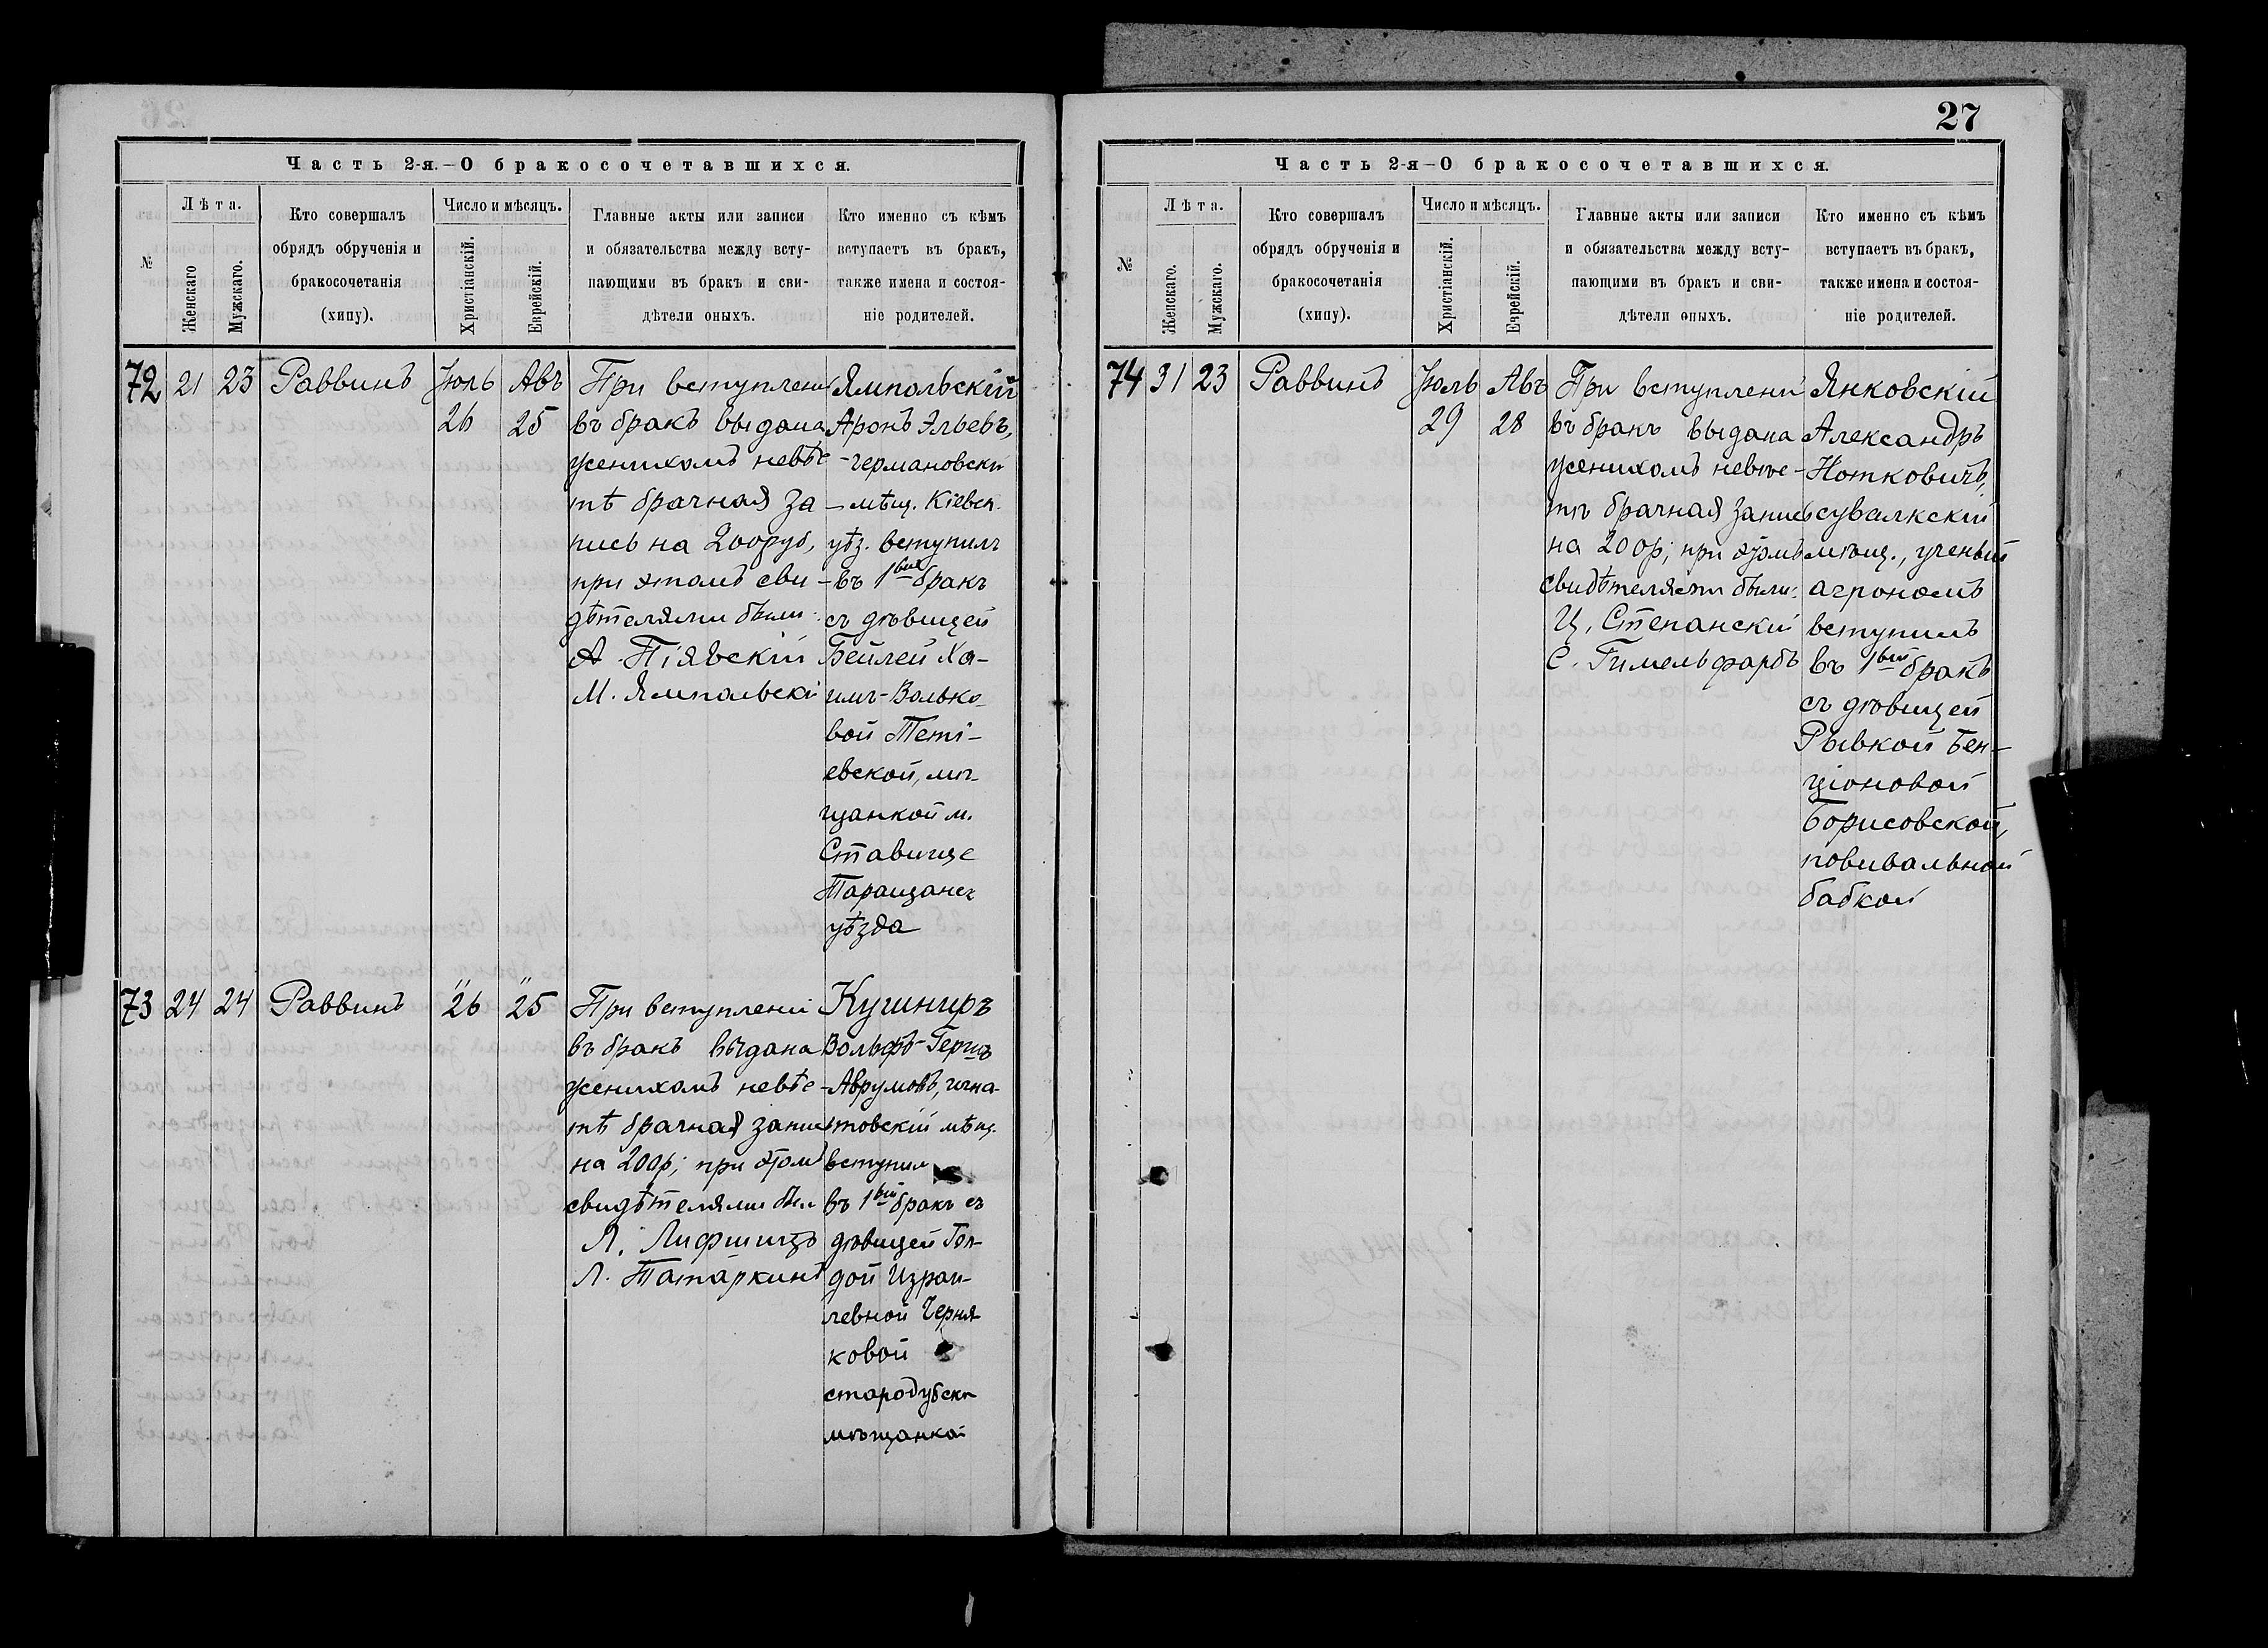 Часть 2-я.—О бракосочетавшихся.
№
Лѣта.
Женскаго
Мужскаго.
Кто совершалъ
обрядъ обрученія и
бракосочетанія
(хипу).
Число и мѣсяцъ.
Христіанскій.
Еврейскій.
Главные акты или записи
и обязательства между всту-
пающими въ бракъ и сви-
дѣтели оныхъ.
Кто именно съ кѣмъ
вступаетъ въ бракъ,
также имена и состоя-
ніе родителей.
72
21
23
Раввинъ
Іюль
26
Авъ
25
При вступлени
въ бракъ выдана
женихомъ невѣс
тѣ брачная за
пись на 200 руб,
при этомъ сви-
дѣтелями были:
А. Піявскій
М. Ямпольскі
Ямпольскій
Аронъ Эльевъ,
-германовскі
-мѣщ. Кіевск.
уѣз. вступилъ
въ 1вый бракъ
съ дѣвицей
Бейлей Ха-
имъ-Волько-
вой Теті-
евской, мѣ-
щанкой м.
Ставище
Таращанск
уѣзда
73
24
24
Раввинъ
"
26
"
25
При вступлені
въ бракъ выдана
женихомъ невѣс-
тѣ брачная запись
на 200р; при этомъ
свидѣтелями был
Л. Лифшицъ
Л. Татаркинъ
Кушниръ
Вольфъ-Гершъ
Аврумовъ, игна-
товскій мѣщ.
вступил
въ 1вый бракъ съ
дѣвицей Гол-
дой Израи-
левной Черня
ковой
стародубск
мѣщанкой
27
Часть 2-я—О бракосочетавшихся.
№
Лѣта.
Женскаго.
Мужскаго.
Кто совершалъ
обрядъ обрученія и
бракосочетанія
(хипу).
Число и мѣсяцъ.
Христіанскій.
Еврейскій.
Главные акты или записи
и обязательства между всту-
пающими въ бракъ и сви-
дѣтели оныхъ.
Кто именно съ кѣмъ
вступаетъ въ бракъ,
также имена и состоя-
ніе родителей.
74
31
23
Раввинъ
Іюль
29
Авъ
28
При вступлени
въ бракъ выдана
женихомъ невѣс-
тѣ брачная запись
на 200р; при этомъ
свидѣтелями были:
Ц. Степанскій
С. Гимельфарбъ
Янковскій
Александръ
Нотковичъ,
сувалкскій
мѣщ., ученый
агрономъ
вступилъ
въ 1вый бракъ
съ дѣвицей
Рывкой Бен-
ціоновой
Борисовской,
повивальной
бабкой